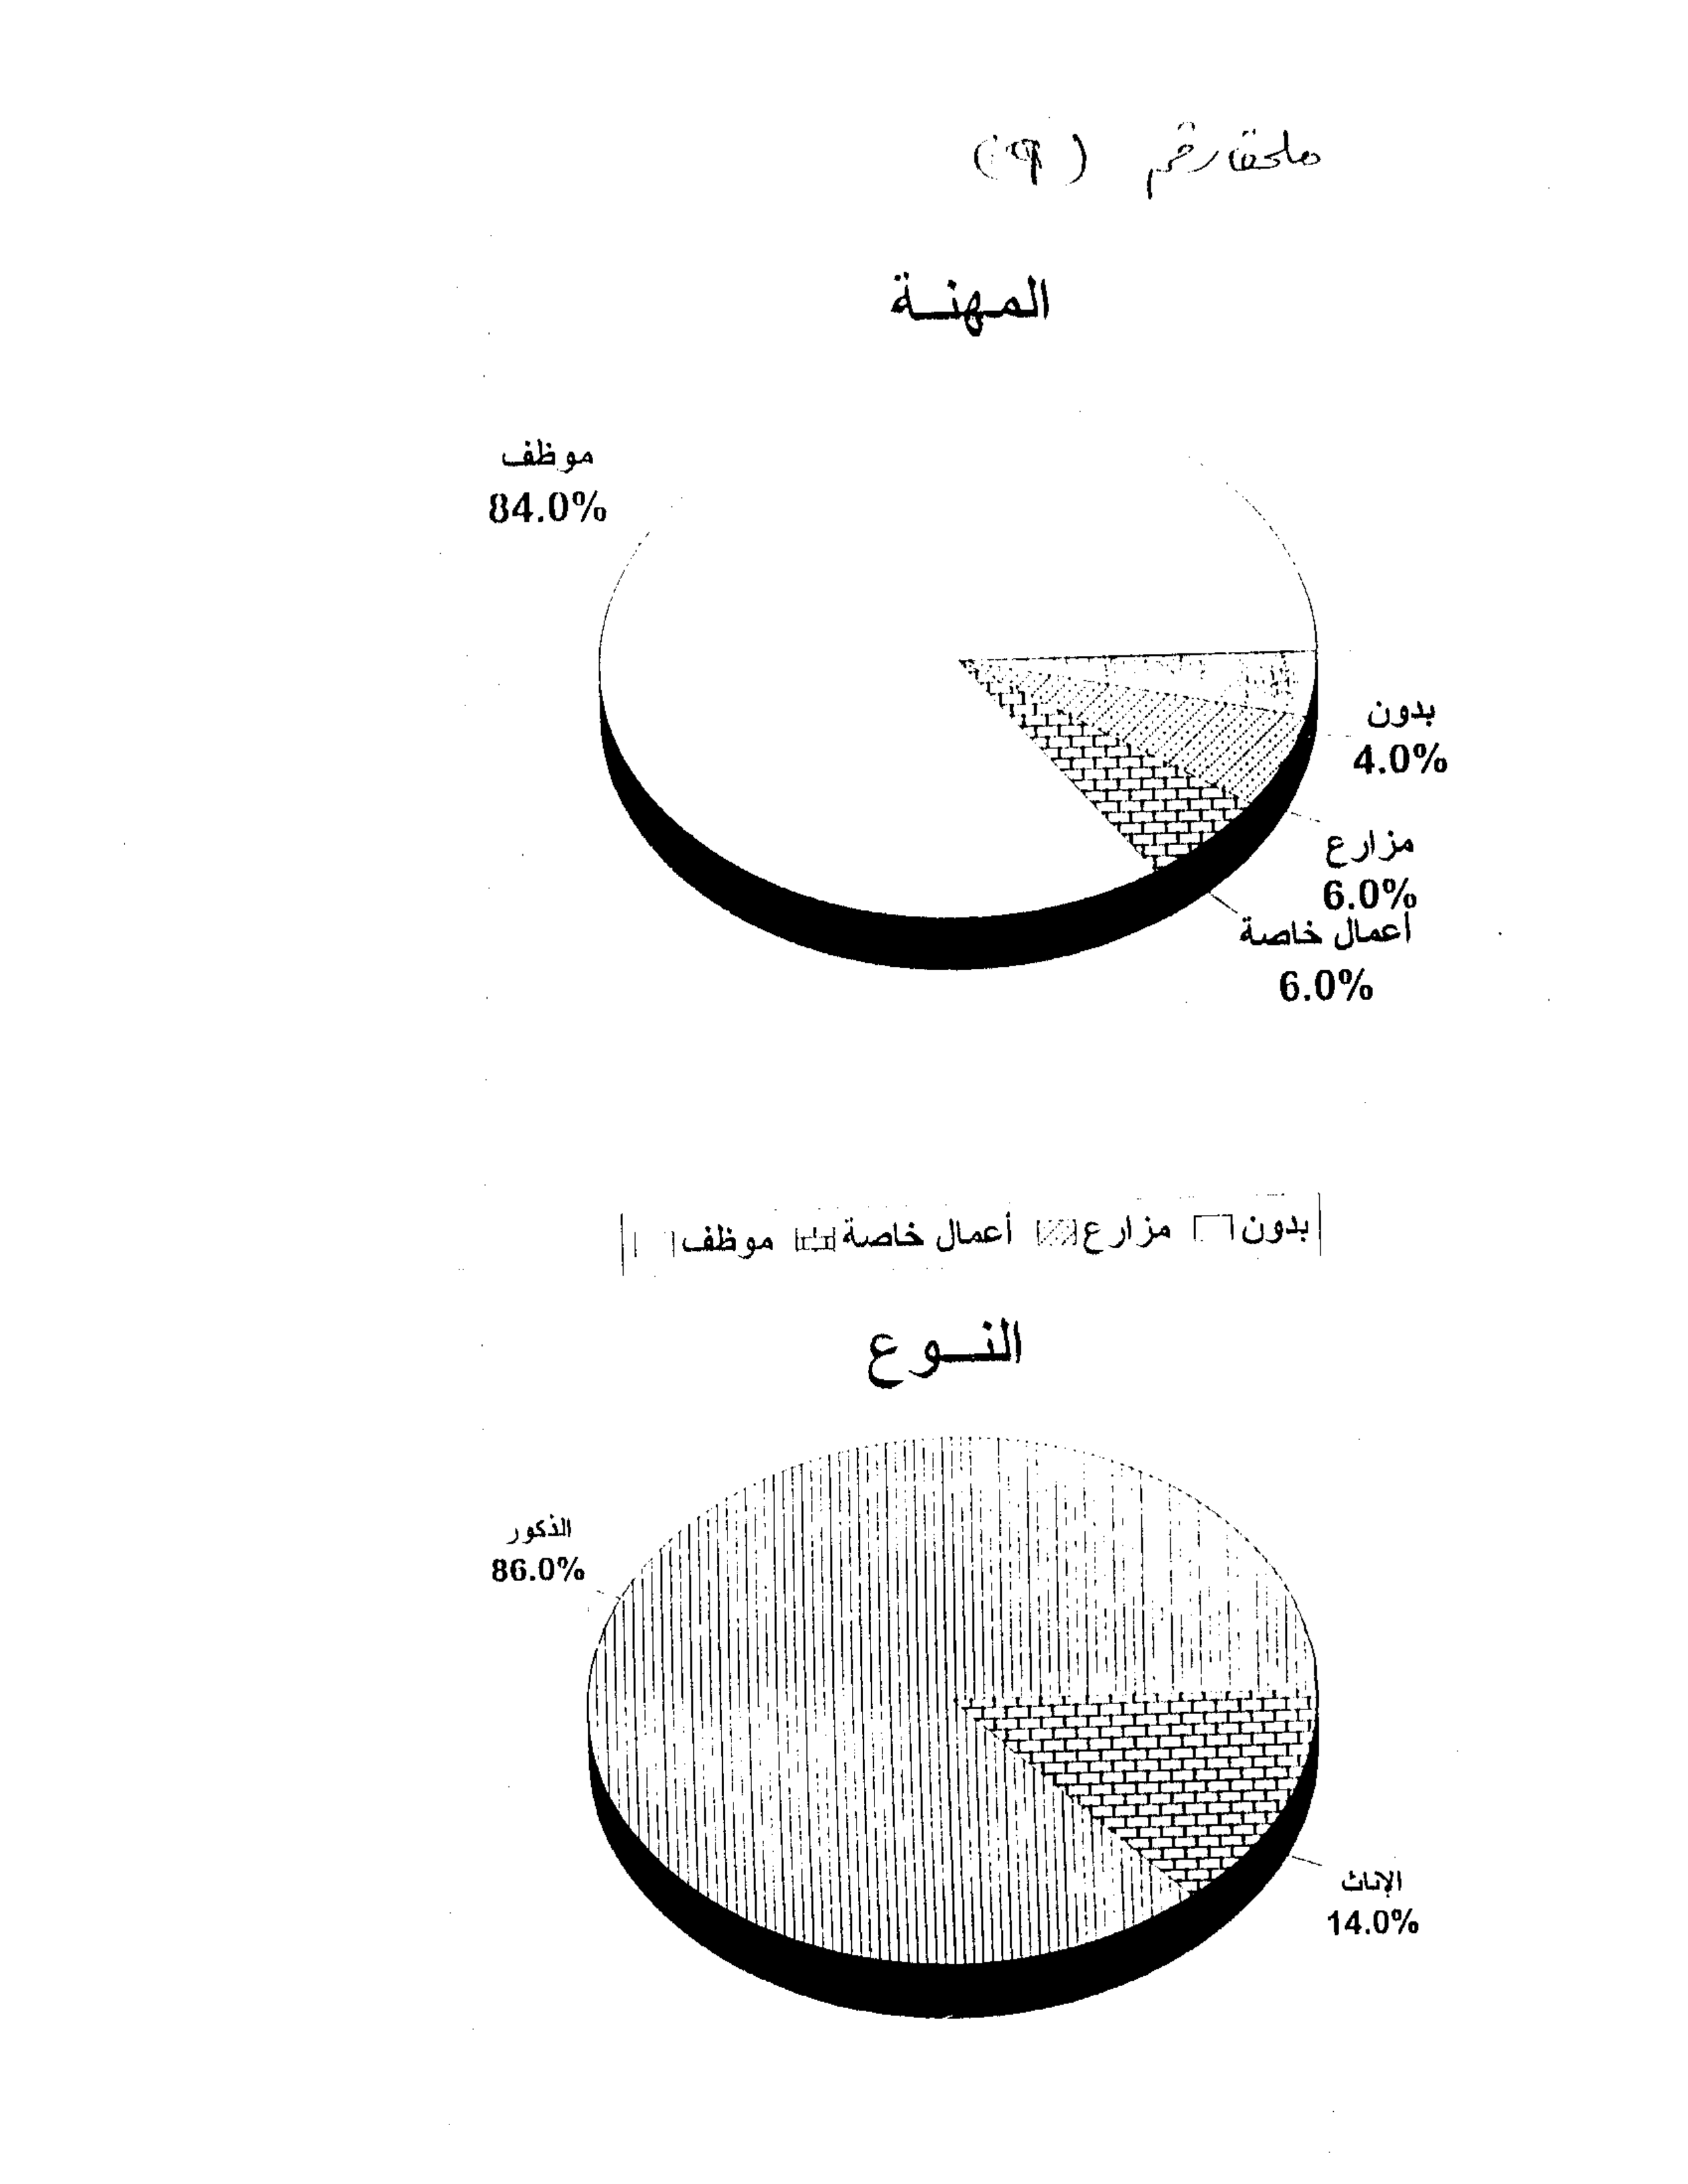 ملحق رقم (٩)
المهنــة
موظف
84.0%
بدون
4.0%
مزارع
6.0%
أعمال خاصة
6.0%
بدون مزارع أعمال خاصة موظف
النــوع
الذكور
86.0%
الإناث
14.0%